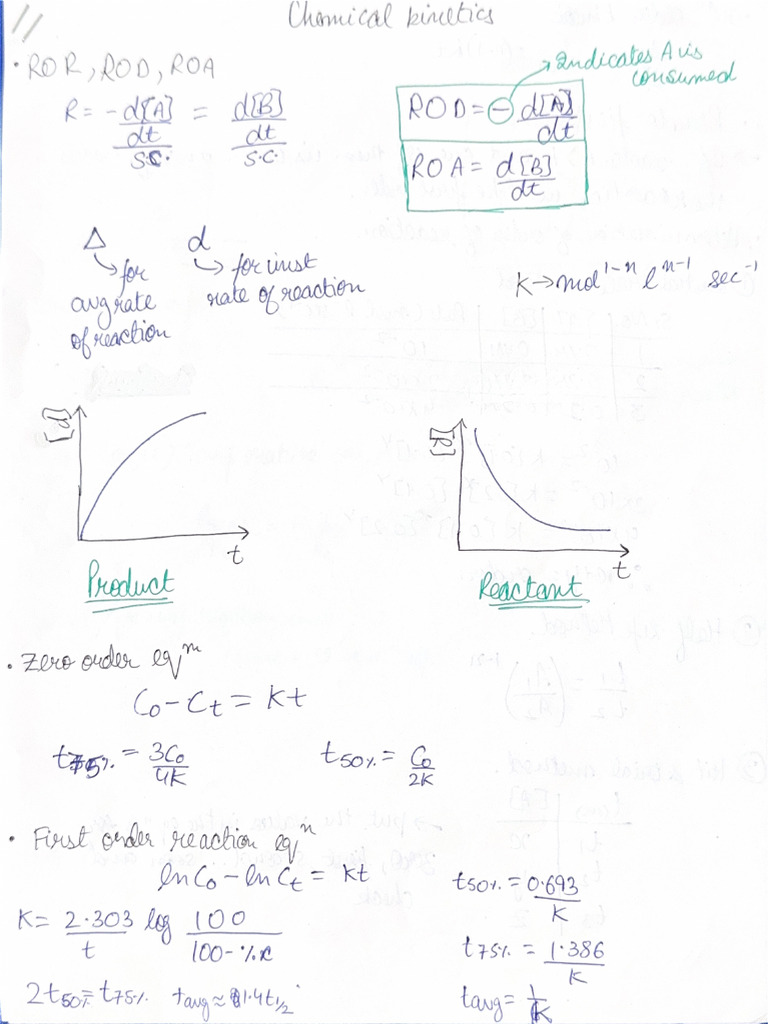 Chemical kinetics
• ROR, ROD, ROA
R = -d[A]/dt/S.C. = d[B]/dt/S.C.
→ Indicates A is
consumed
ROD = - d[A]/dt
ROA = d[B]/dt
Δ
↳ for
avg rate
of reaction
d
↳ for inst
rate of reaction
K → mol¹⁻ⁿ lⁿ⁻¹ sec⁻¹
t
Product
t
Reactant
• Zero order eqⁿ
C₀ - Ct = Kt
t75% = 3C₀/4K
t50% = C₀/2K
• First order reaction eqⁿ
lnC₀ - lnCt = Kt
K = 2.303/t log 100/100-%x
2t50% = t75%
tavg ≈ 1.4t1/2
t50% = 0.693/K
t75% = 1.386/K
tavg = 1/K